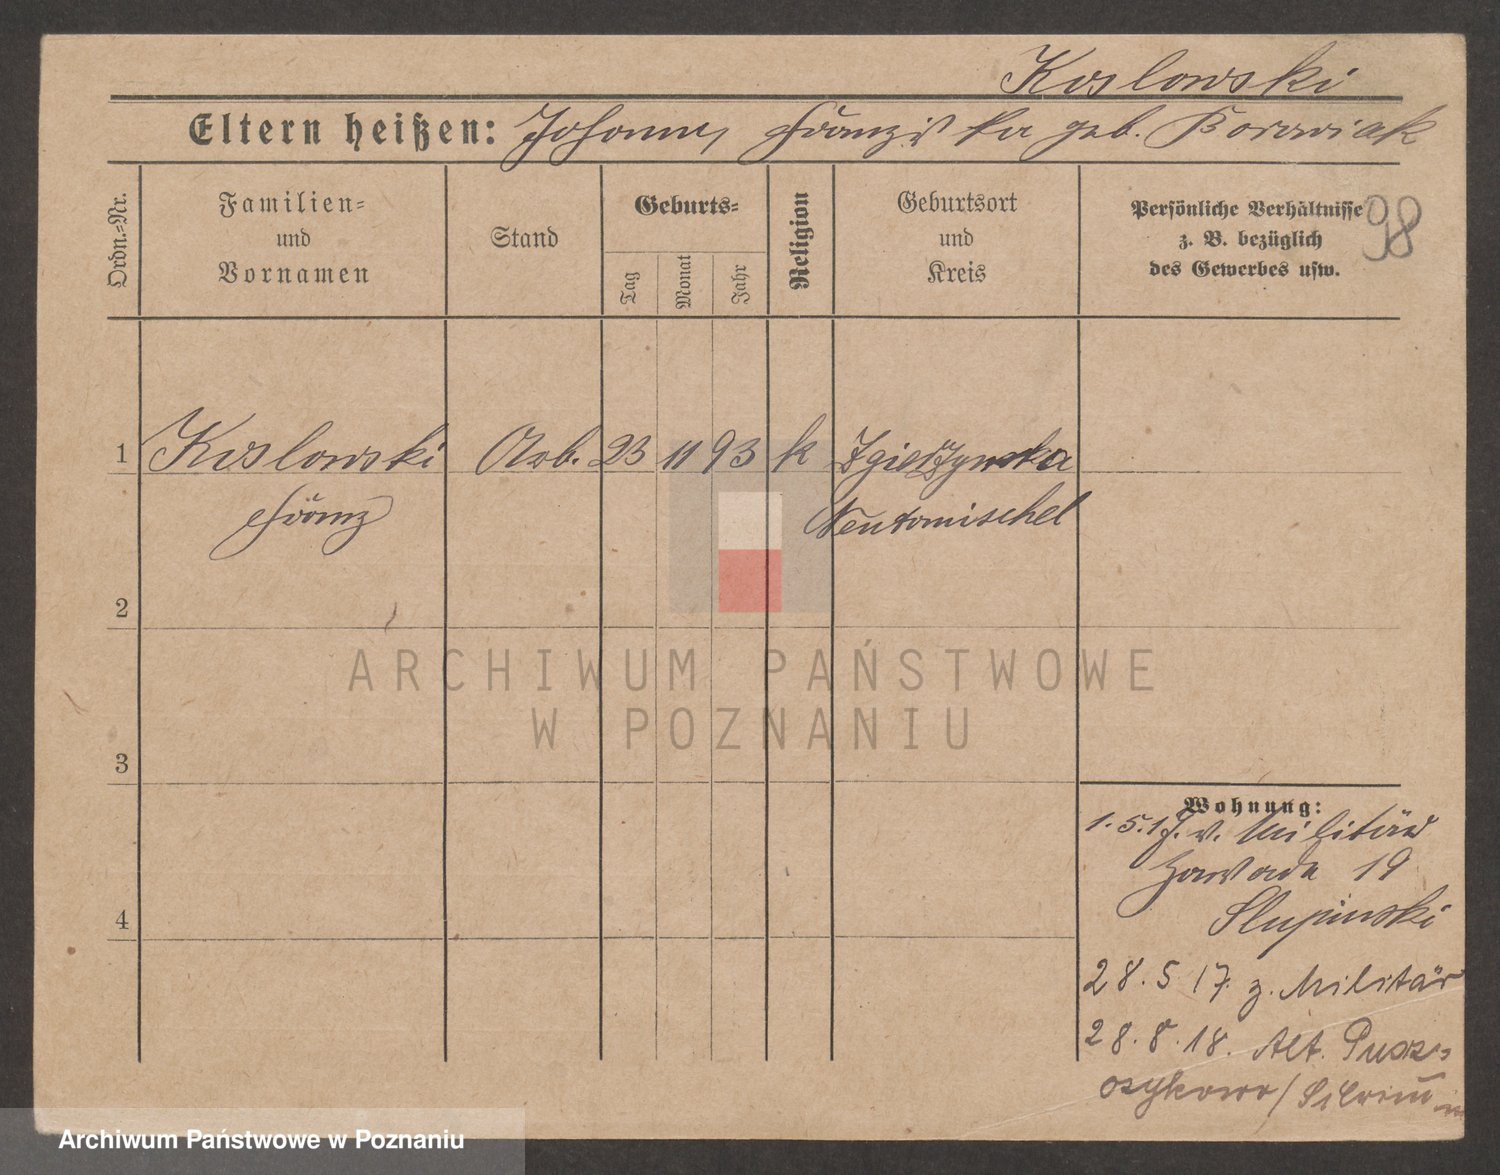 Koslowski
Eltern heißen: Johann, Franziska geb. Borowiak
Ordn.=Nr.
Familien=
und
Vornamen
Stand
Geburts=
Tag
Monat
Jahr
Religion
Geburtsort
und
Kreis
Persönliche Verhältnisse
z. B. bezüglich
des Gewerbes usw.
98
1 Koslowski Arb. 23 11 93 k
Franz Neutomischel
2
3
4
Wohnung:
1.5.17. v. Militär
Zawade 19
Slupinski
28.5 17. z. Militär
28.8.18. Alt.
ARCHIWUM PAŃSTWOWE
W POZNANIU
Archiwum Państwowe w Poznaniu